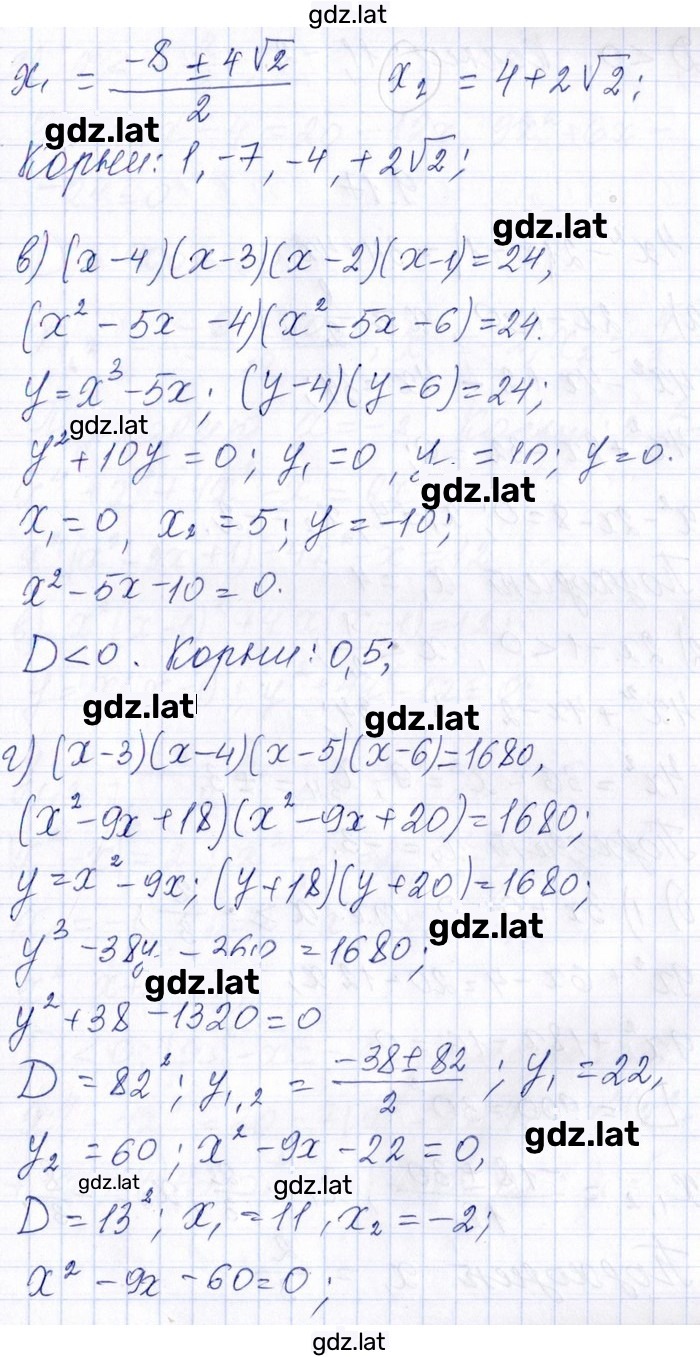 gdz.lat
x₁ = (-8 ± 4√2)/2 x₂ = 4+2√2;
gdz.lat
Корни: 1, -7, -4, +2√2;
gdz.lat
в) (x-4)(x-3)(x-2)(x-1)=24,
(x² - 5x -4)(x² -5x -6)=24.
y=x³-5x; (y-4)(y-6)=24;
gdz.lat
y²+10y=0; y₁=0, = 10; y=0.
gdz.lat
x₁=0, x₂ = 5; y = -10;
x² - 5x -10 = 0.
D<0. Корни: 0,5;
gdz.lat
gdz.lat
г) (x-3)(x-4)(x-5)(x-6)=1680,
(x²-9x+18)(x²-9x+20)=1680;
y=x²-9x; (y+18)(y+20)=1680;
gdz.lat
y³ -38y - 360 = 1680;
gdz.lat
y²+38-1320=0
D = 82²; y₁,₂ = (-38±82)/2; y₁=22,
gdz.lat
y₂ = 60; x² - 9x - 22 = 0,
gdz.lat
gdz.lat
D=13²; x₁ = 11, x₂ = -2;
x² - 9x - 60=0;
gdz.lat